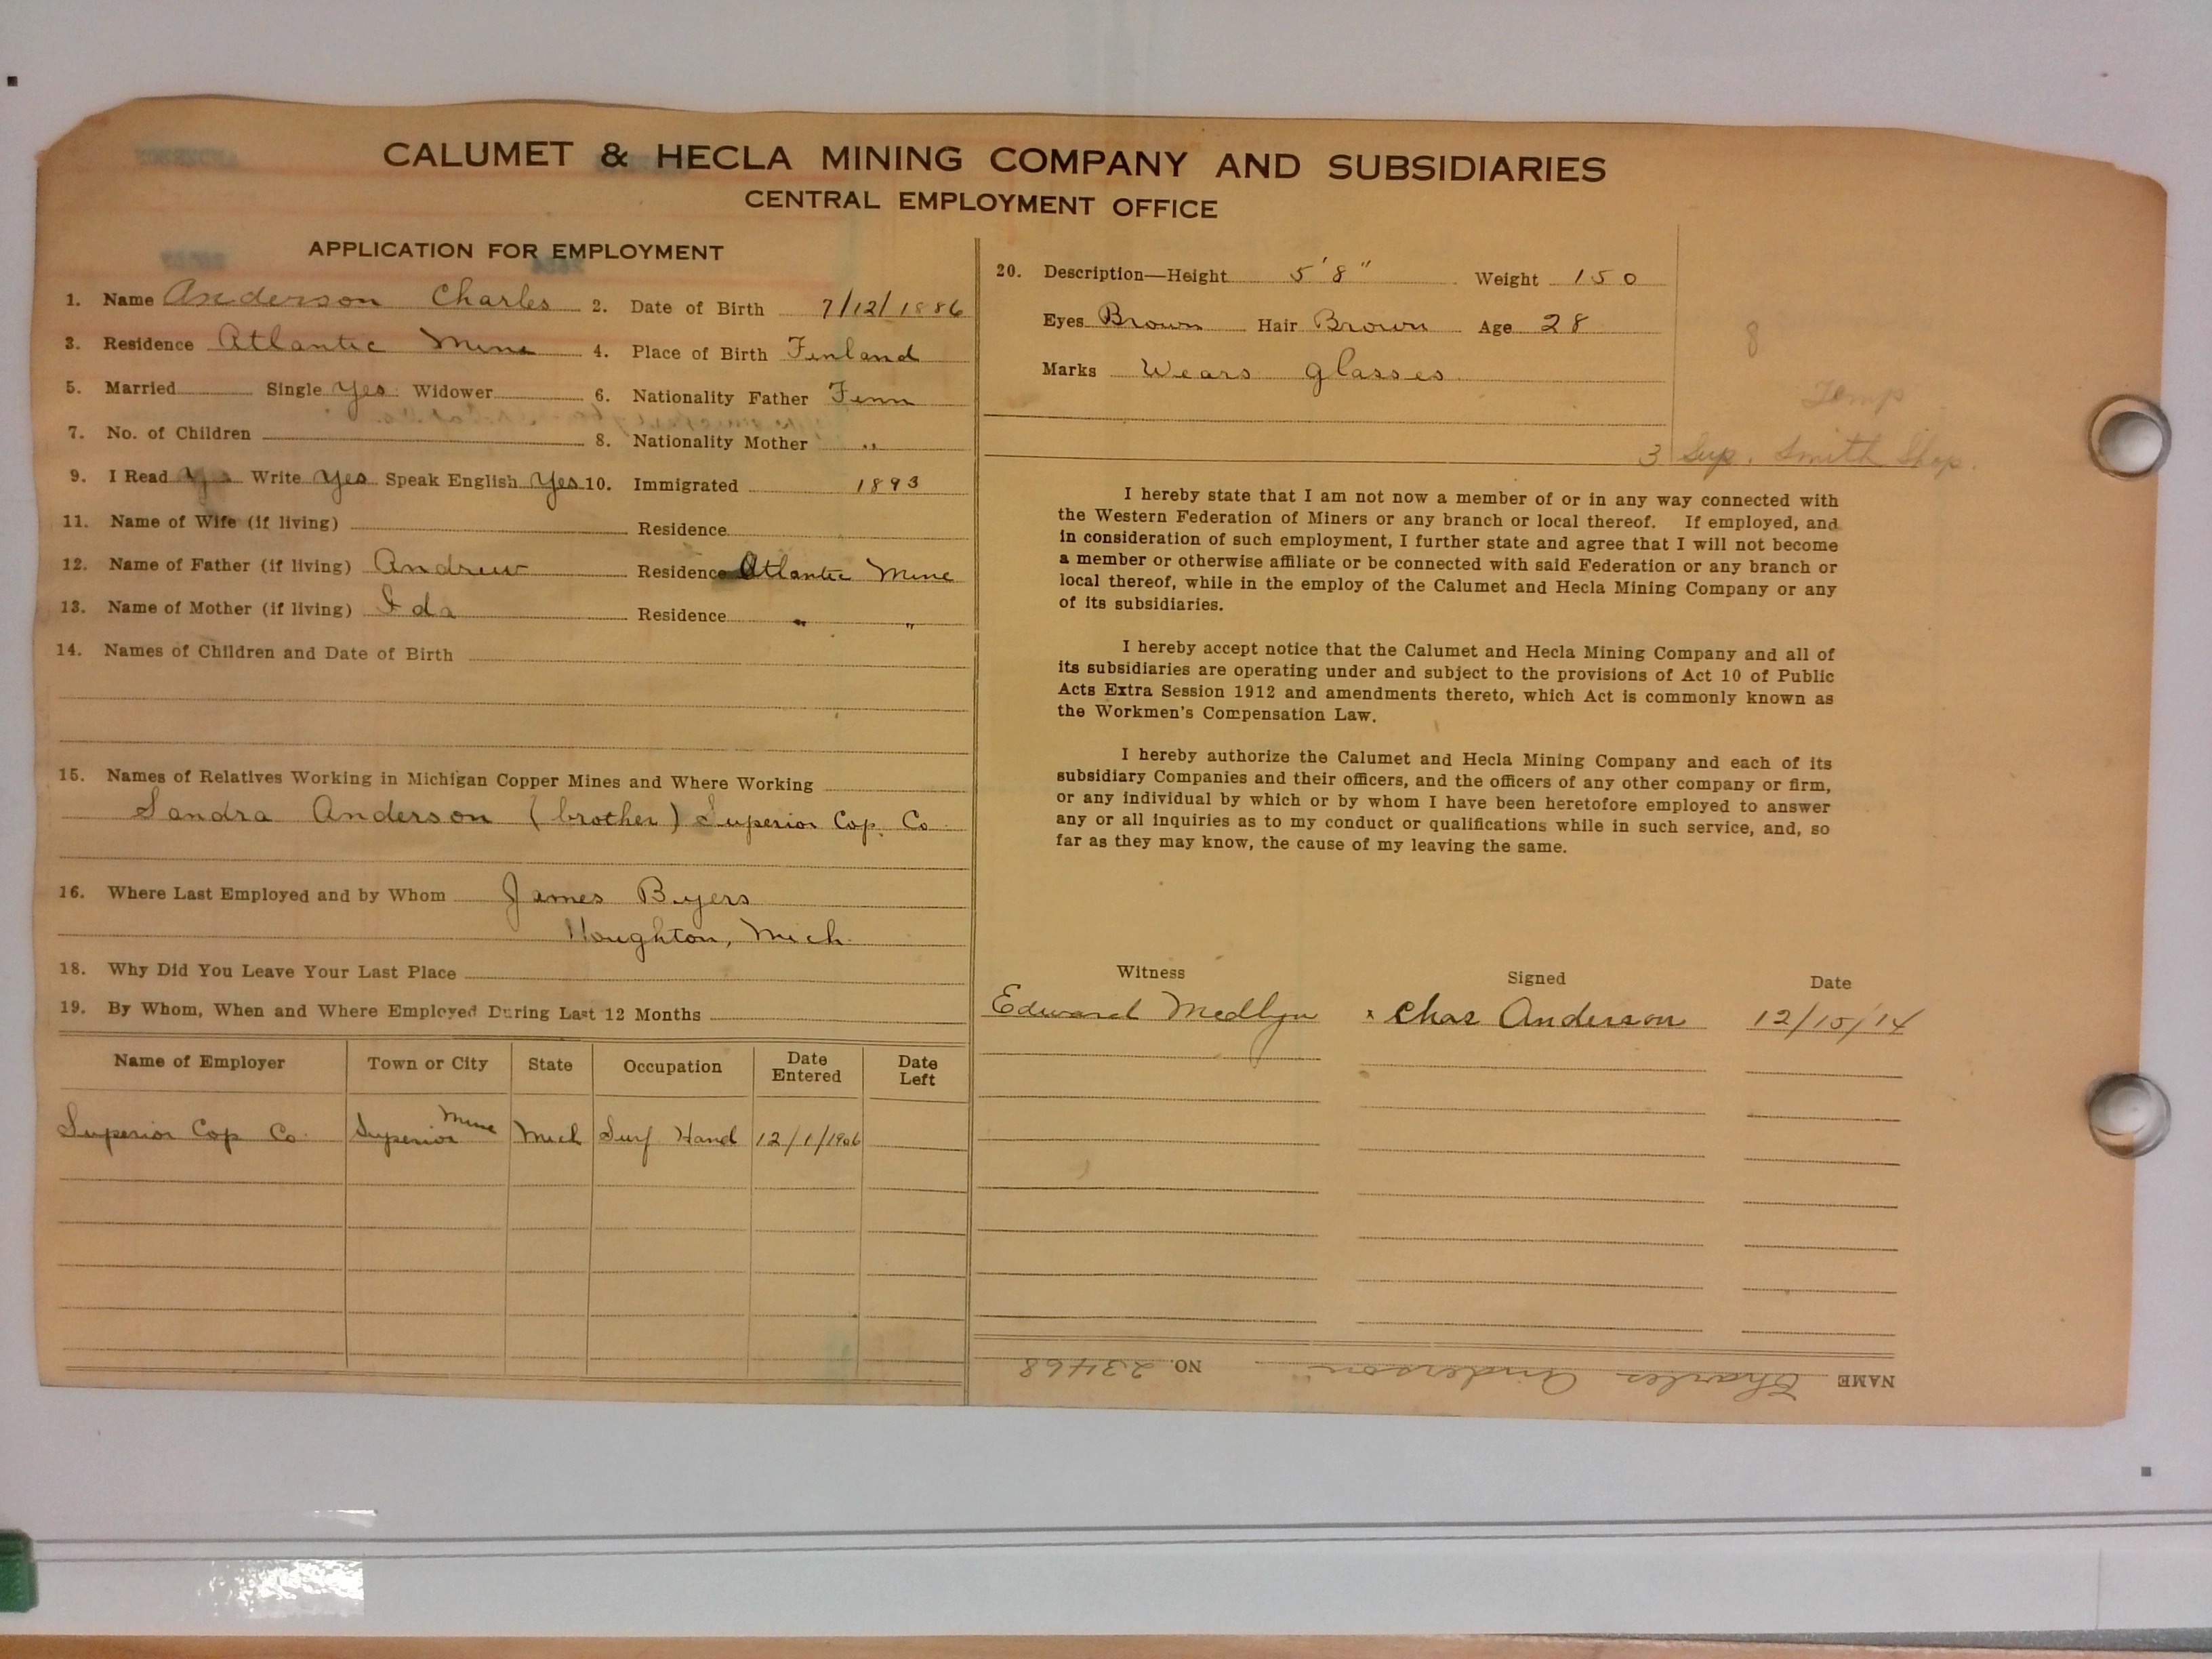 CALUMET & HECLA MINING COMPANY AND SUBSIDIARIES
CENTRAL EMPLOYMENT OFFICE
APPLICATION FOR EMPLOYMENT
1. Name Anderson Charles 2. Date of Birth 7/12/1886
3. Residence Atlantic Mine 4. Place of Birth Finland
5. Married Single Yes Widower 6. Nationality Father Finn
7. No. of Children 8. Nationality Mother "
9. I Read Yes Write Yes Speak English Yes 10. Immigrated 1893
11. Name of Wife (if living) Residence
12. Name of Father (if living) Andrew Residence Atlantic Mine
13. Name of Mother (if living) Ida Residence " "
14. Names of Children and Date of Birth
15. Names of Relatives Working in Michigan Copper Mines and Where Working
Sandra Anderson (brother) Superior Cop. Co
16. Where Last Employed and by Whom James Byers
Houghton, Mich.
18. Why Did You Leave Your Last Place
19. By Whom, When and Where Employed During Last 12 Months
Name of Employer Town or City State Occupation Date Entered Date Left
Superior Cop Co. Superior Mine Mich Surf Hand 12/1/1906
20. Description—Height 5'8" Weight 150
Eyes Brown Hair Brown Age 28
Marks Wears glasses
8
Temp
3 Sup. Smith Shop.
I hereby state that I am not now a member of or in any way connected with
the Western Federation of Miners or any branch or local thereof. If employed, and
in consideration of such employment, I further state and agree that I will not become
a member or otherwise affiliate or be connected with said Federation or any branch or
local thereof, while in the employ of the Calumet and Hecla Mining Company or any
of its subsidiaries.
I hereby accept notice that the Calumet and Hecla Mining Company and all of
its subsidiaries are operating under and subject to the provisions of Act 10 of Public
Acts Extra Session 1912 and amendments thereto, which Act is commonly known as
the Workmen's Compensation Law.
I hereby authorize the Calumet and Hecla Mining Company and each of its
subsidiary Companies and their officers, and the officers of any other company or firm,
or any individual by which or by whom I have been heretofore employed to answer
any or all inquiries as to my conduct or qualifications while in such service, and, so
far as they may know, the cause of my leaving the same.
Witness Signed Date
Edward Medlyn x Chas Anderson 12/15/14
NAME Charles Anderson NO. 23468